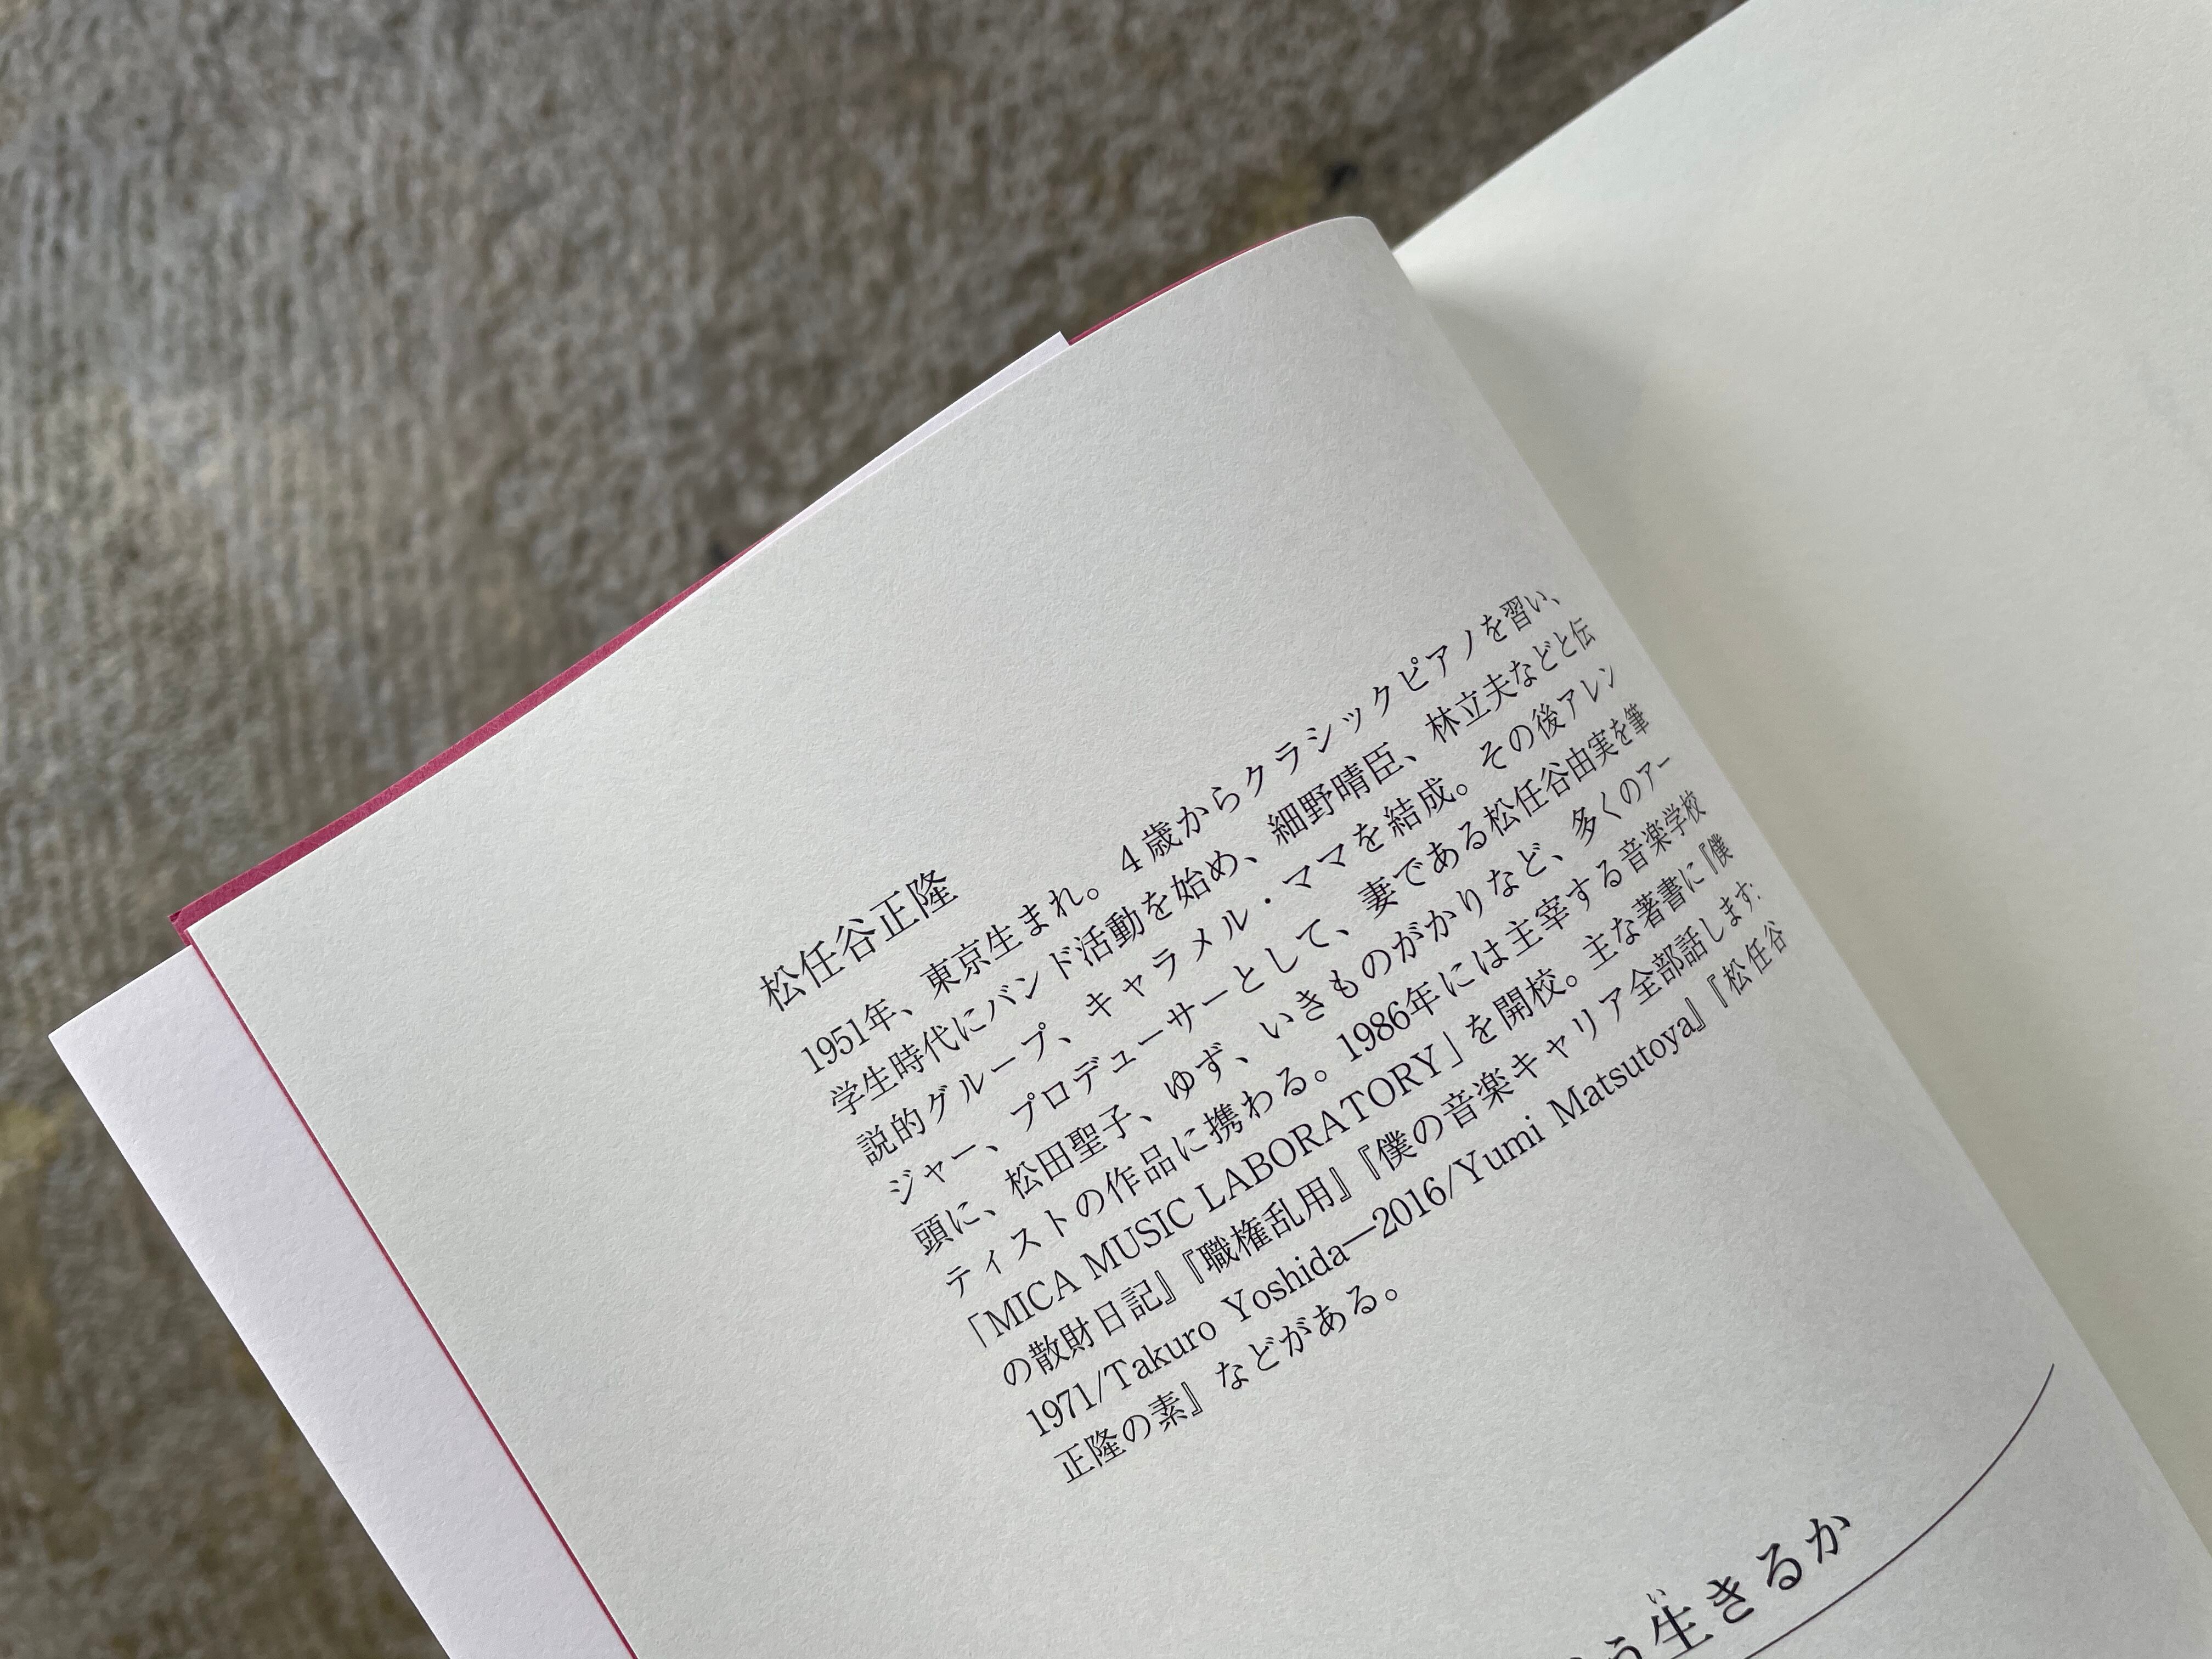 松任谷正隆
1951年、東京生まれ。4歳からクラシックピアノを習い、
学生時代にバンド活動を始め、細野晴臣、林立夫などと伝
説的グループ、キャラメル・ママを結成。その後アレン
ジャー、プロデューサーとして、妻である松任谷由実を筆
頭に、松田聖子、ゆず、いきものがかりなど、多くのアー
ティストの作品に携わる。1986年には主宰する音楽学校
「MICA MUSIC LABORATORY」を開校。主な著書に『僕
の散財日記』『職権乱用』『僕の音楽キャリア全部話します:
1971/Takuro Yoshida―2016/Yumi Matsutoya』『松任谷
正隆の素』などがある。
う生きるか
い